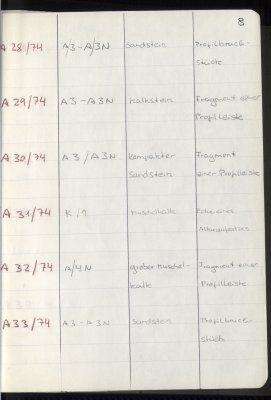 8
A 28/74 A/3-A/3N Sandstein Profilbruch-
stück
A 29/74 A3-A3N Kalkstein Fragment einer
Profilleiste
A 30/74 A3/A3N kompakter Fragment
Sandstein einer Profilleiste
A 31/74 K/1 Muschelkalk Ecke eines
A 32/74 A/4N grober Muschel- Fragment einer
kalk Profilleiste
A 33/74 A3-A3N Sandstein Profilbruch-
stück